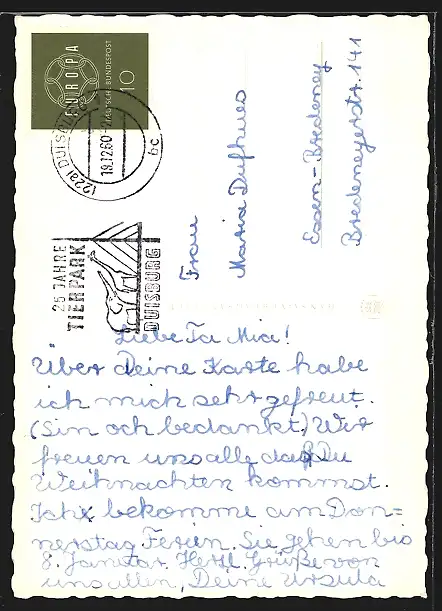 EUROPA
DEUTSCHE BUNDESPOST
10
(22a) DUISBURG
19.12.60
bc
25 JAHRE
TIERPARK
DUISBURG
Frau
Maria Dufhues
Essen-Bredeney
Bredeneyerstr. 141
Liebe Ta Mia!
Über Deine Karte habe
ich mich sehr gefreut.
(Sin och bedankt.) Wir
freuen uns alle daß Du
Weihnachten kommst.
Ich bekomme am Don=
nerstag Ferien. Sie gehen bis
8. Januar. Herzl. Grüße von
uns allen, Deine Ursula